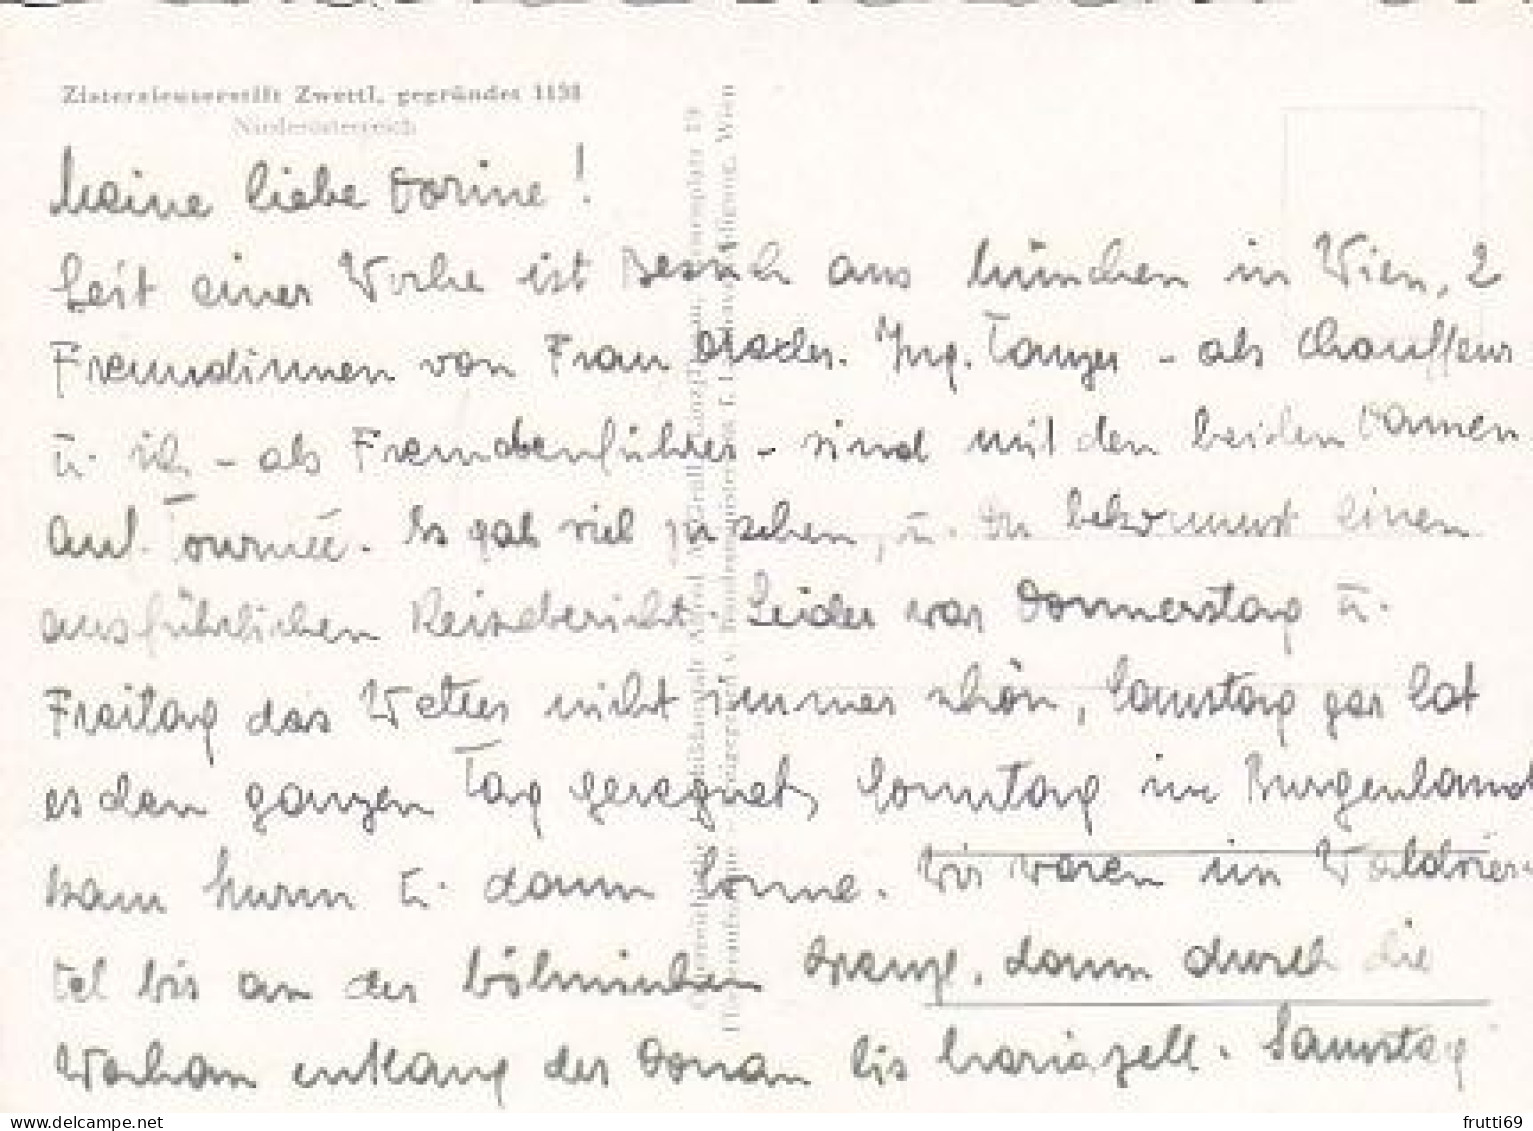 Zisterzienserstift Zwettl, gegründet 1138
Niederösterreich
Meine liebe Dorine!
Seit einer Woche ist Besuch aus München in Wien, 2
Freundinnen von Frau Ing. Tanzer - als Chauffeur
u. ich - als Fremdenführer - sind mit den beiden Damen
auf Tournée. Es gab viel zu sehen, u. Du bekommst einen
ausführlichen Reisebericht. Leider war Donnerstag u.
Freitag das Wetter nicht immer schön, Samstag gar hat
es den ganzen Tag geregnet, Sonntag im Burgenland
kam Sturm u. dann Sonne. Wir waren im Waldvier-
tel bis an der böhmischen Grenze, dann durch die
Wachau entlang der Donau bis Mariazell. Samstag
delcampe.net
frutti69